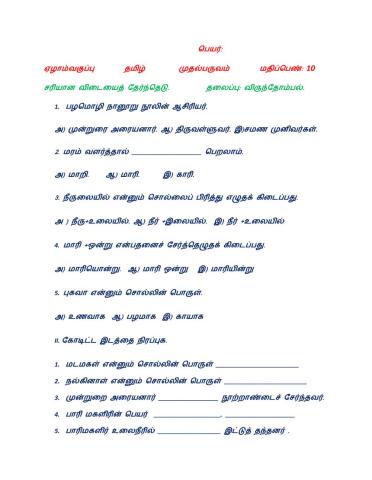 பெயர்:
ஏழாம்வகுப்பு தமிழ் முதல்பருவம் மதிப்பெண்: 10
சரியான விடையைத் தேர்ந்தெடு. தலைப்பு: விருந்தோம்பல்.
1. பழமொழி நானூறு நூலின் ஆசிரியர்.
அ) முன்றுரை அரையனார். ஆ) திருவள்ளுவர். இ)சமண முனிவர்கள்.
2. மரம் வளர்த்தால் ____________________ பெறலாம்.
அ) மாறி. ஆ) மாரி. இ) காரி.
3. நீருலையில் என்னும் சொல்லைப் பிரித்து எழுதக் கிடைப்பது.
அ ) நீரு+உலையில். ஆ) நீர் +இலையில். இ) நீர் +உலையில்
4. மாரி +ஒன்று என்பதனைச் சேர்த்தெழுதக் கிடைப்பது.
அ) மாரியொன்று. ஆ) மாரி ஒன்று இ) மாரியின்று
5. புகவா என்னும் சொல்லின் பொருள்.
அ) உணவாக ஆ) பழமாக இ) காயாக
II. கோடிட்ட இடத்தை நிரப்புக.
1. மடமகள் என்னும் சொல்லின் பொருள் ____________________
2. நல்கினாள் என்னும் சொல்லின் பொருள் ____________________
3. முன்றுறை அரையனார் ______________ நூற்றாண்டைச் சேர்ந்தவர்.
4. பாரி மகளிரின் பெயர் ________________, ________________
5. பாரிமகளிர் உலைநீரில் ________________ இட்டுத் தந்தனர் .